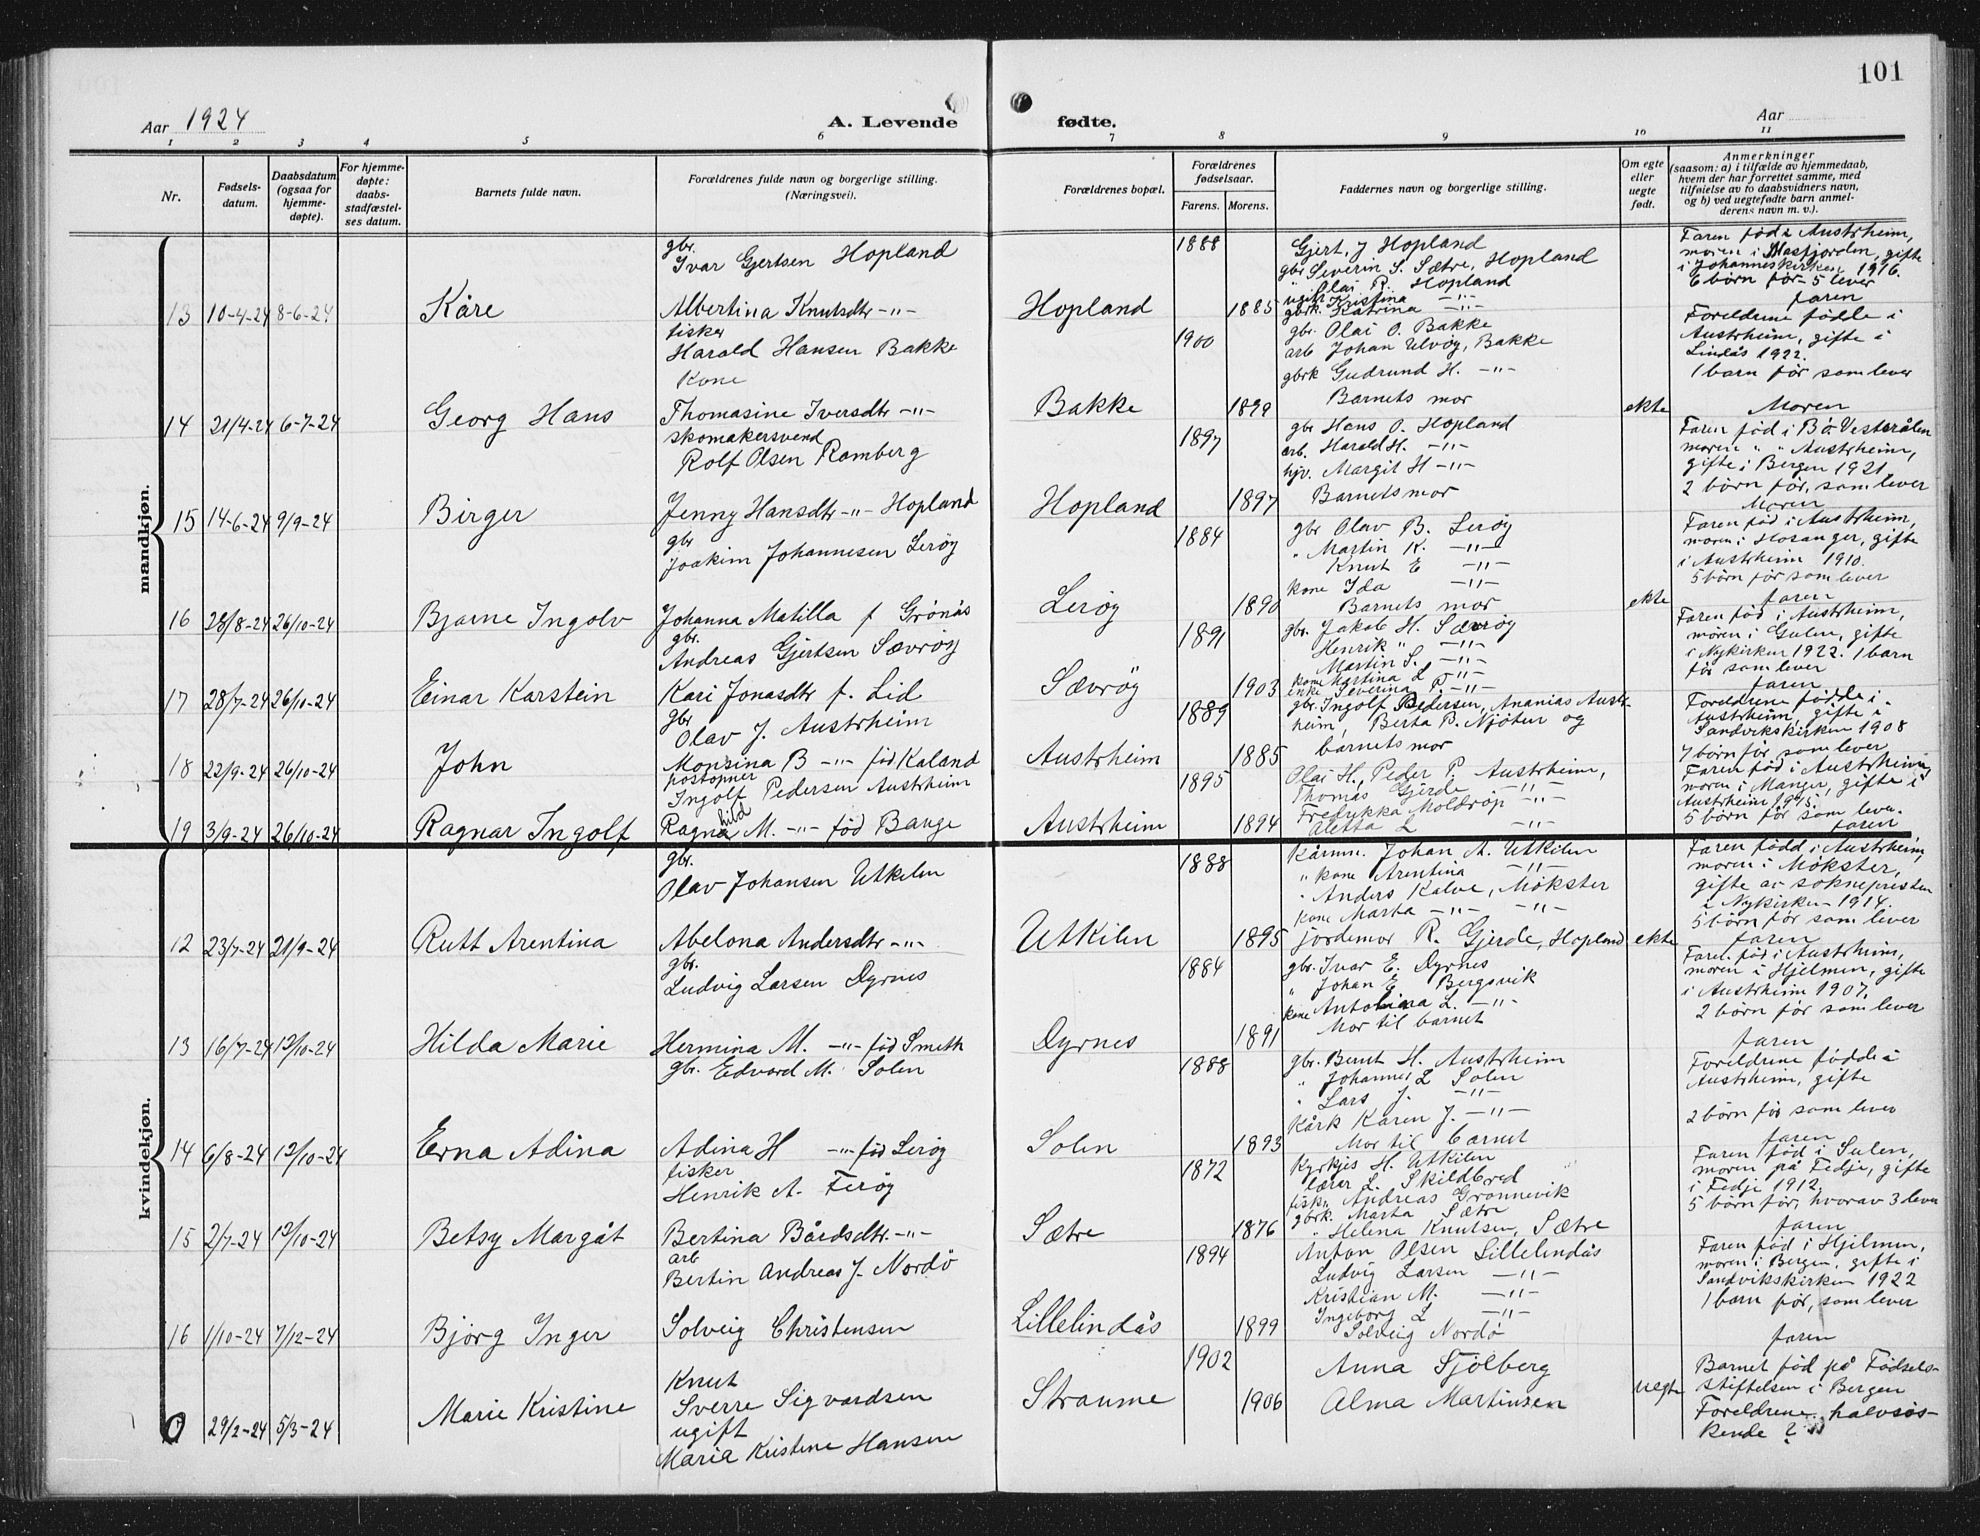 101
Aar 1924
A. Levende
fødte.
Aar
1 2 3 4 5 6 7 8 9 10 11
Nr.
Fødsels-
datum.
Daabsdatum
(ogsaa for
hjemme-
døpte).
For hjemme-
døpte:
daabs-
stadfæstel-
ses datum.
Barnets fulde navn.
Forældrenes fulde navn og borgerlige stilling.
(Næringsvei).
Forældrenes bopæl.
Forældrenes
fødselsaar.
Farens. Morens.
Faddernes navn og borgerlige stilling.
Om egte
eller
uegte
født.
Anmerkninger
(saasom: a) i tilfælde av hjemmedaab,
hvem der har forrettet samme, med
tilføielse av to daabsvidners navn,
og b) ved uegtefødte barn anmel-
derens navn m. v.).
mandkjøn.
13 10-4-24 8-6-24 Kåre
gbr.
Ivar Gjertsen Hopland
Albertina Knutsdtr -"-
Hopland
1888
1885
Gjert. J Hopland
gbr Severin S. Sætre, Hopland
" Olai R. Hopland
ugift Kristina -"-
gbrk. Katrina -"-
Faren fød i Austrheim,
moren i Masfjorden, gifte
i Johanneskirken 1916.
6 børn før - 5 lever
faren
14 21/4-24 6-7-24 Georg Hans
fisker
Harald Hansen Bakke
Kone
Thomasine Iversdtr -"-
Bakke
1900
1899
gbr. Olai O. Bakke
arb Johan Ulvøy, Bakke
gbrk Gudrund H. -"-
Barnets mor
ekte
Foreldrene fødde i
Austrheim, gifte i
Lindås 1922.
1 barn før som lever
Moren
15 14-6-24 9/9-24 Birger
skomakersvend
Rolf Olsen Romberg
Jenny Hansdtr -"- Hopland
Hopland
1897
1897
gbr Hans O. Hopland
arb. Harald H. -"-
hjv. Margit H -"-
Barnets mor
Faren fød i Bø Vesterålen
moren " " Austrheim,
gifte i Bergen 1921.
2 børn før, som lever
Moren
16 28/8-24 26/10-24 Bjarne Ingolv
gbr
Joakim Johannesen Lerøy
Johanna Matilla f Grønås
Lerøy
1884
1890
gbr Olav B. Lerøy
" Martin K. -"-
Knut E -"-
kone Ida -"-
Barnets mor
ekte
Faren fød i Austrheim,
moren i Hosanger, gifte
i Austrheim 1910.
5 børn før som lever
faren
17 28/7-24 26/10-24 Einar Karstein
gbr.
Andreas Gjertsen Sævrøy
Kari Jonasdtr f. Lid
Sævrøy
1891
1903
gbr. Jakob H. Sævrøy
Henrik " -"-
Martin S. -"-
kone Martina L -"-
enke Severina P. -"-
Faren fød i Austrheim,
moren i Gulen, gifte
i Nykirken 1922. 1 barn
før som lever
faren
18 22/9-24 26/10-24 John
gbr
Olav J. Austrheim
Monsina B -"- fød Kaland
Austrheim
1889
1885
gbr. Ingolf Pedersen, Ananias Austr-
heim, Berta B. Njøtun og
barnets mor
Foreldrene fødde i
Austrheim, gifte i
Sandvikskirken 1908
7 børn før som lever
19 3/9-24 26/10-24 Ragnar Ingolf
postopner
Ingolf Pedersen Austrheim
Ragnahild M. -"- fød Bauge
Austrheim
1895
1894
Olai H., Peder P. Austrheim,
Thomas Gjerde -"-
Fredrikka Moldrøp -"-
Aletta L -"-
Faren fød i Austrheim
moren i Manger, gifte i
Austrheim 1915.
5 børn før som lever.
faren
kvindekjøn.
12 23/7-24 21/9-24 Rutt Arentina
gbr.
Olav Johansen Utkilen
Abelona Andersdtr -"-
Utkilen
1888
1895
kårmn. Johan A. Utkilen
" kone Arentina -"-
" Anders Kalve, Møkster
kone Marta -"- -"-
jordemor R. Gjerde, Hopland
ekte
Faren fødd i Austrheim,
moren i Møkster,
gifte av soknepresten
i Nykirken 1914.
5 børn før som lever
faren
13 16/7-24 12/10-24 Hilda Marie
gbr.
Ludvig Larsen Dyrnes
Hermina M. -"- fød Smeth
Dyrnes
1884
1891
gbr. Ivar E. Dyrnes
" Johan E Bergsvik
kone Antonina L. -"-
Mor til barnet
Faren fød i Austrheim,
moren i Hjelmen, gifte
i Austrheim 1907.
2 børn før som lever
faren
14 6/8-24 12/10-24 Erna Adina
gbr. Edvard M. Solen
Adina H -"- fød Lerøy
Solen
1888
1893
gbr. Bernt H. Austrheim
" Johannes L Solen
" Lars J. -"-
kårk Karen J. -"-
Mor til barnet
Foreldrene fødde i
Austrheim, gifte
2 børn før som lever
faren
15 2/7-24 12/10-24 Betsy Margåt
fisker
Henrik A. Ferøy
Bertina Bårdsdtr. -"-
Sætre
1872
1876
Kyrkjes H. Utkilen
lærer L. Skildbred
fisk. Andreas Grønnevik
gbrk. Marta Sætre
" Helena Knutsen, Sætre
Faren fød i Sulen,
moren på Fedje, gifte
i Fedje 1912.
5 børn før, hvorav 3 lever
faren
16 1/10-24 7/12-24 Bjørg Inger
arb
Bertin Andreas J. Nordø
Solveig Christensen
Lillelindås
1894
1899
Anton Olsen Lillelindås
Ludvig Larsen -"-
Kristian M. -"-
Ingeborg L -"-
Solveig Nordø
Faren fød i Hjelmen,
moren i Bergen, gifte i
Sandvikskirken 1922
1 barn før, som lever
faren
0 29/2-24 5/3-24 Marie Kristine
Knut
Sverre Sigvardsen
ugift
Maria Kristene Hansen
Straume
1902
1906
Anna Sjølberg
Alma Martinsen
uegte
Barnet fød på Fødsels-
stiftelsen i Bergen
Foreldrene halvsøs-
kende ?